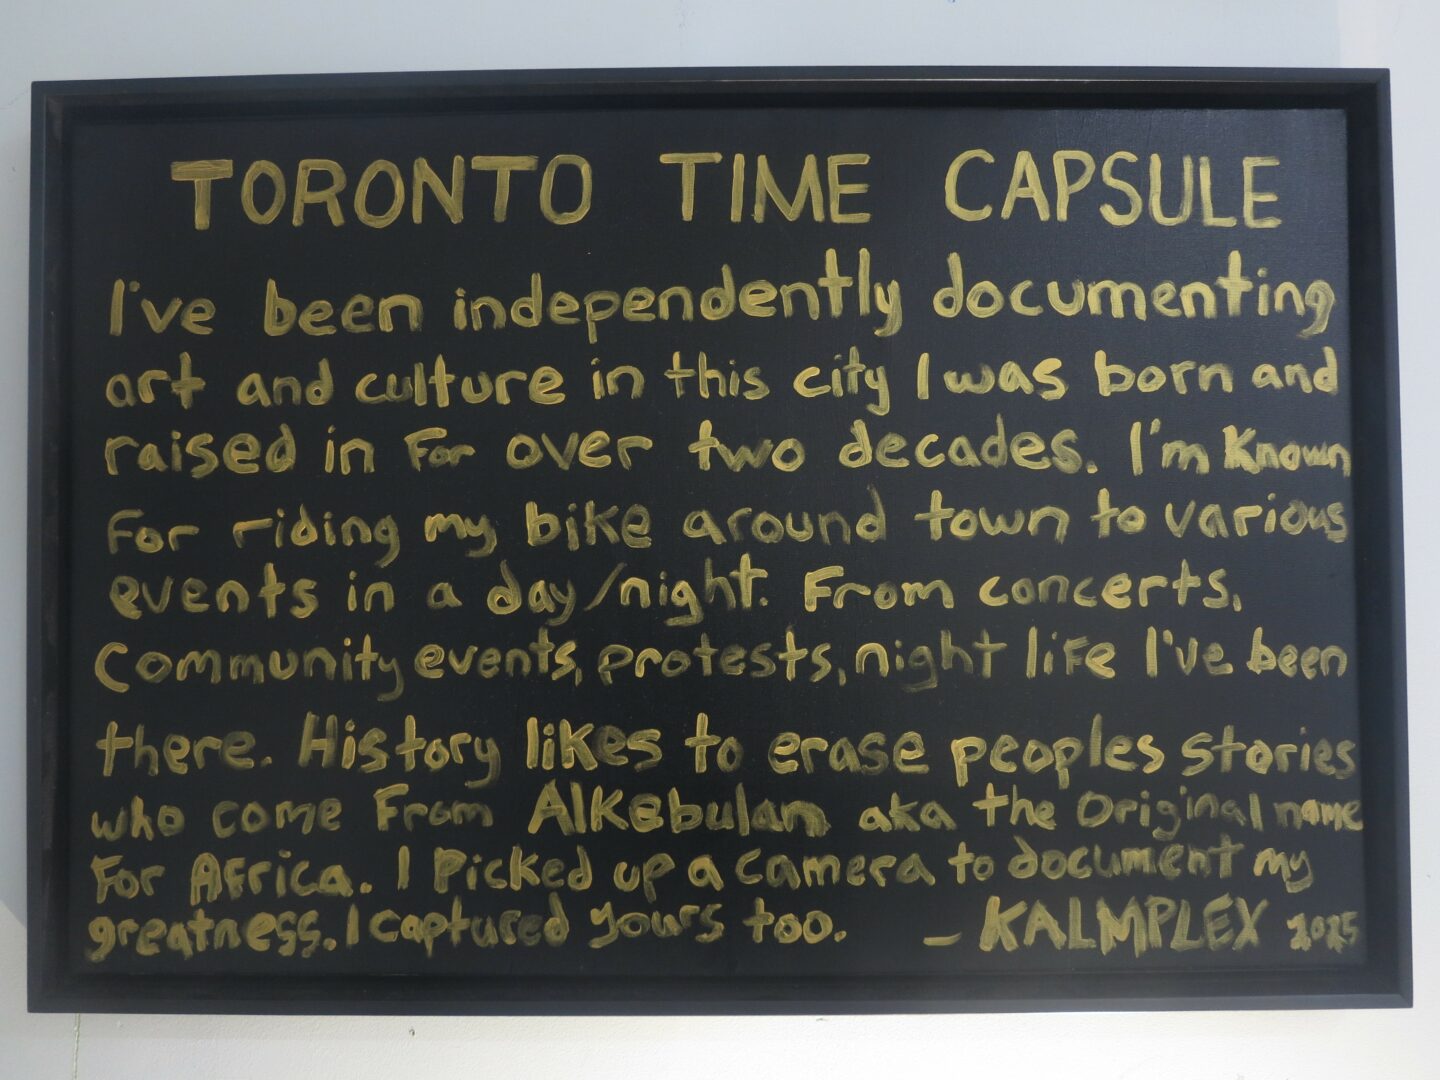 TORONTO TIME CAPSULE
I've been independently documenting
art and culture in this city I was born and
raised in For over two decades. I'm Known
For riding my bike around town to various
events in a day/night. From concerts,
Community events, protests, night life I've been
there. History likes to erase peoples stories
who come From Alkebulan aka the Original name
For Africa. I Picked up a camera to document my
greatness. I captured yours too. - KALMPLEX 2025